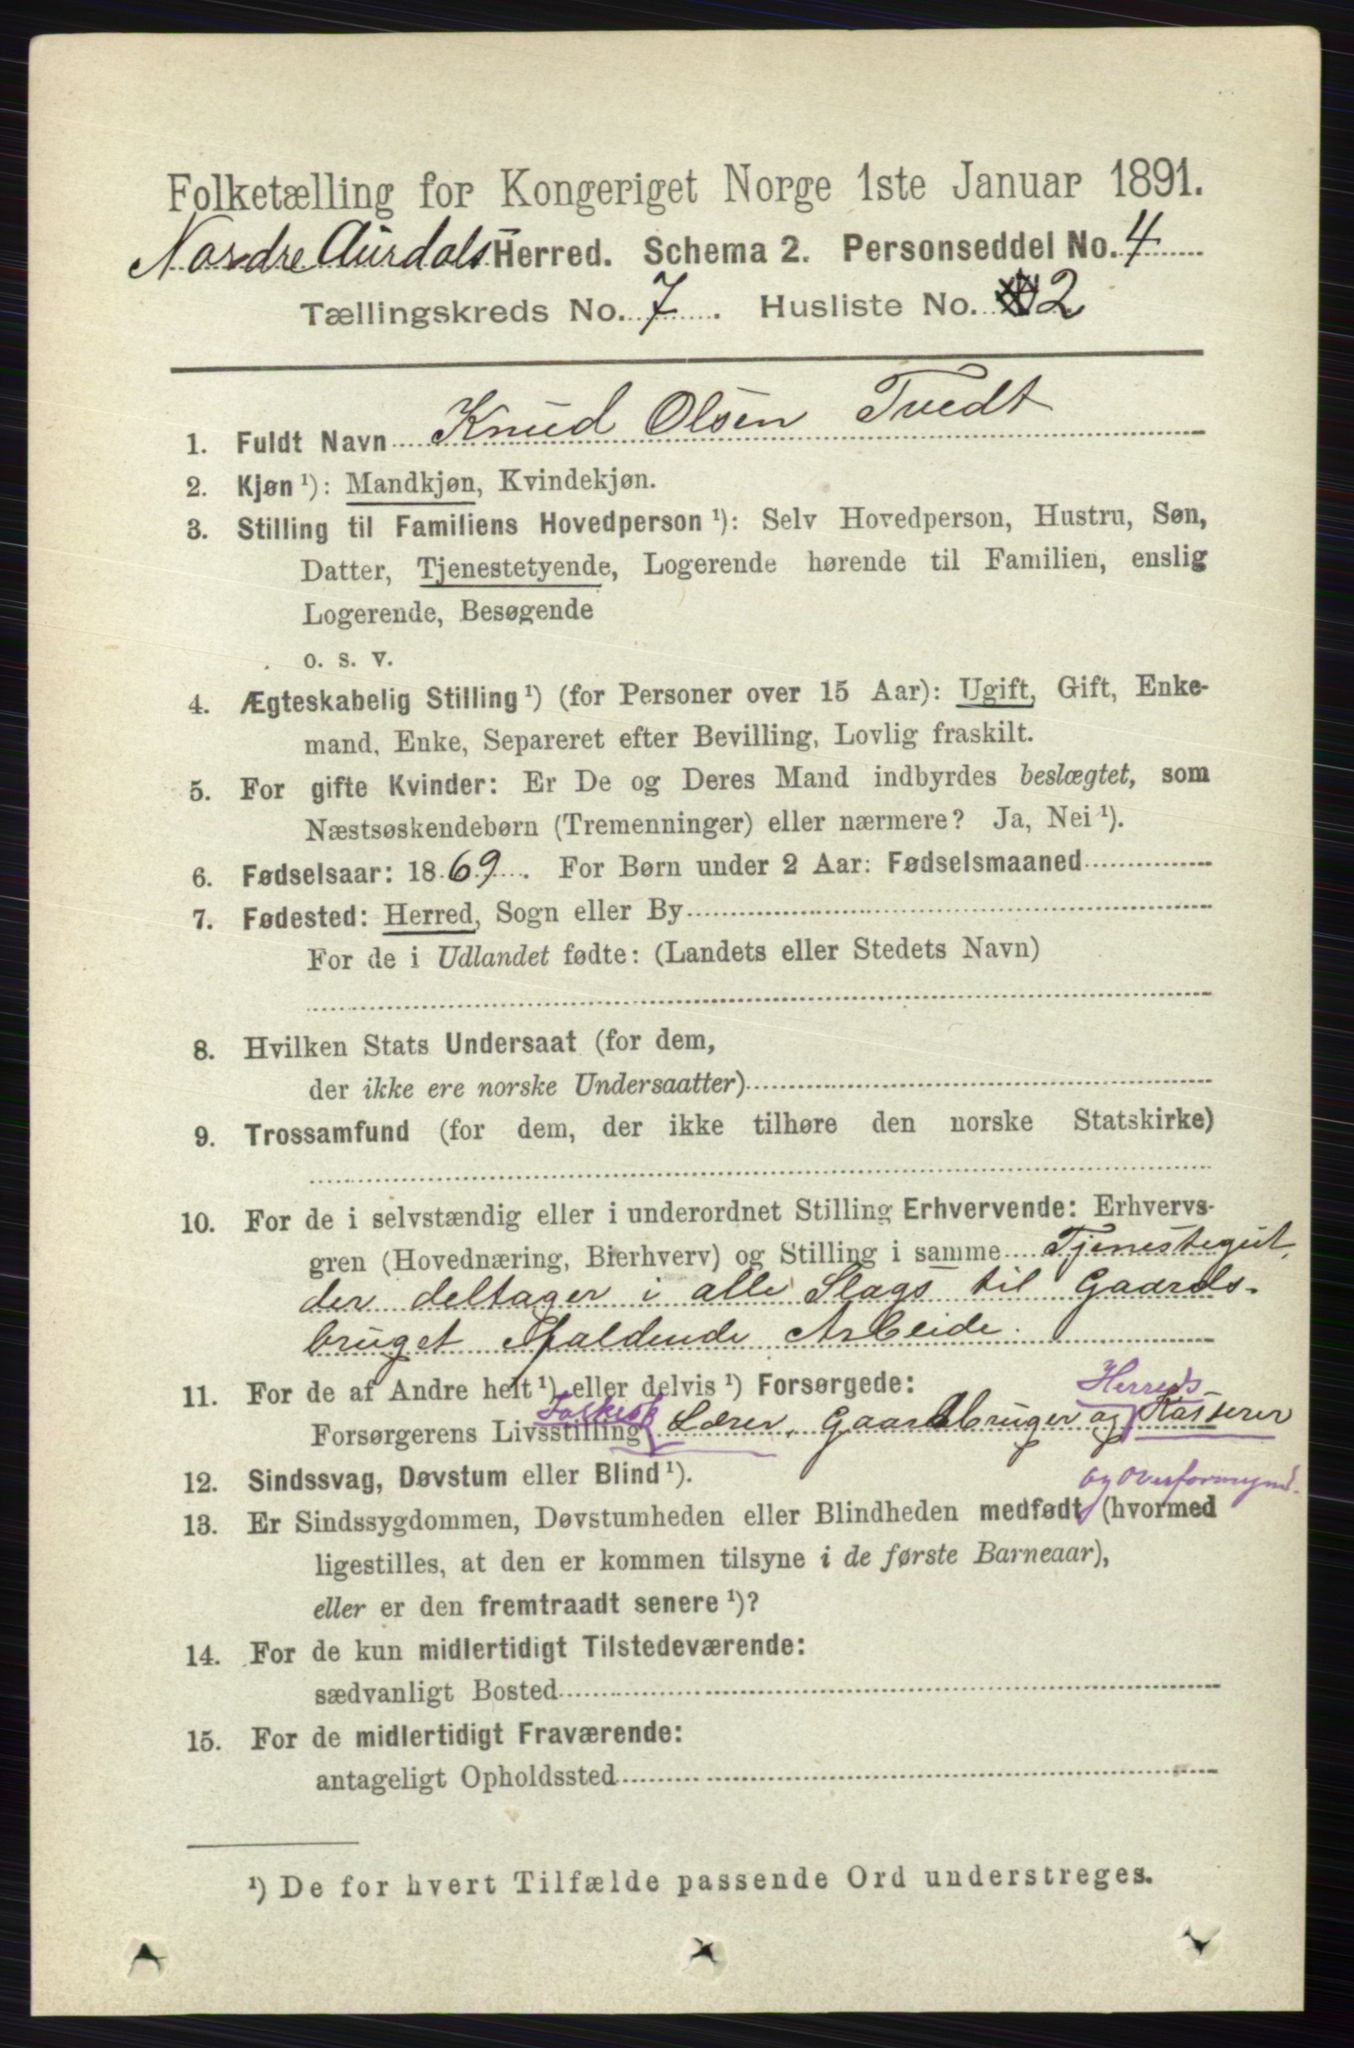 Folketælling for Kongeriget Norge 1ste Januar 1891.
Nordre Aurdals Herred. Schema 2. Personseddel No. 4
Tællingskreds No. 7. Husliste No. 2
1. Fuldt Navn Knud Olsen Tvedt
2. Kjøn ¹): Mandkjøn, Kvindekjøn.
3. Stilling til Familiens Hovedperson ¹): Selv Hovedperson, Hustru, Søn,
Datter, Tjenestetyende, Logerende hørende til Familien, enslig
Logerende, Besøgende
o. s. v.
4. Ægteskabelig Stilling ¹) (for Personer over 15 Aar): Ugift, Gift, Enke-
mand, Enke, Separeret efter Bevilling, Lovlig fraskilt.
5. For gifte Kvinder: Er De og Deres Mand indbyrdes beslægtet, som
Næstsøskendebørn (Tremenninger) eller nærmere? Ja, Nei ¹).
6. Fødselsaar: 1869. For Børn under 2 Aar: Fødselsmaaned
7. Fødested: Herred, Sogn eller By
For de i Udlandet fødte: (Landets eller Stedets Navn)
8. Hvilken Stats Undersaat (for dem,
der ikke ere norske Undersaatter)
9. Trossamfund (for dem, der ikke tilhøre den norske Statskirke)
10. For de i selvstændig eller i underordnet Stilling Erhvervende: Erhvervs-
gren (Hovednæring, Bierhverv) og Stilling i samme Tjenestegut,
der deltager i alle Slags til Gaards-
bruget faldende Arbeide.
11. For de af Andre helt ¹) eller delvis ¹) Forsørgede: Herreds
Forsørgerens Livsstilling Folkesk Lærer, Gaardbruger og Kasserer
12. Sindssvag, Døvstum eller Blind ¹). og Overformynd.
13. Er Sindssygdommen, Døvstumheden eller Blindheden medfødt (hvormed
ligestilles, at den er kommen tilsyne i de første Barneaar),
eller er den fremtraadt senere ¹)?
14. For de kun midlertidigt Tilstedeværende:
sædvanligt Bosted
15. For de midlertidigt Fraværende:
antageligt Opholdssted
¹) De for hvert Tilfælde passende Ord understreges.